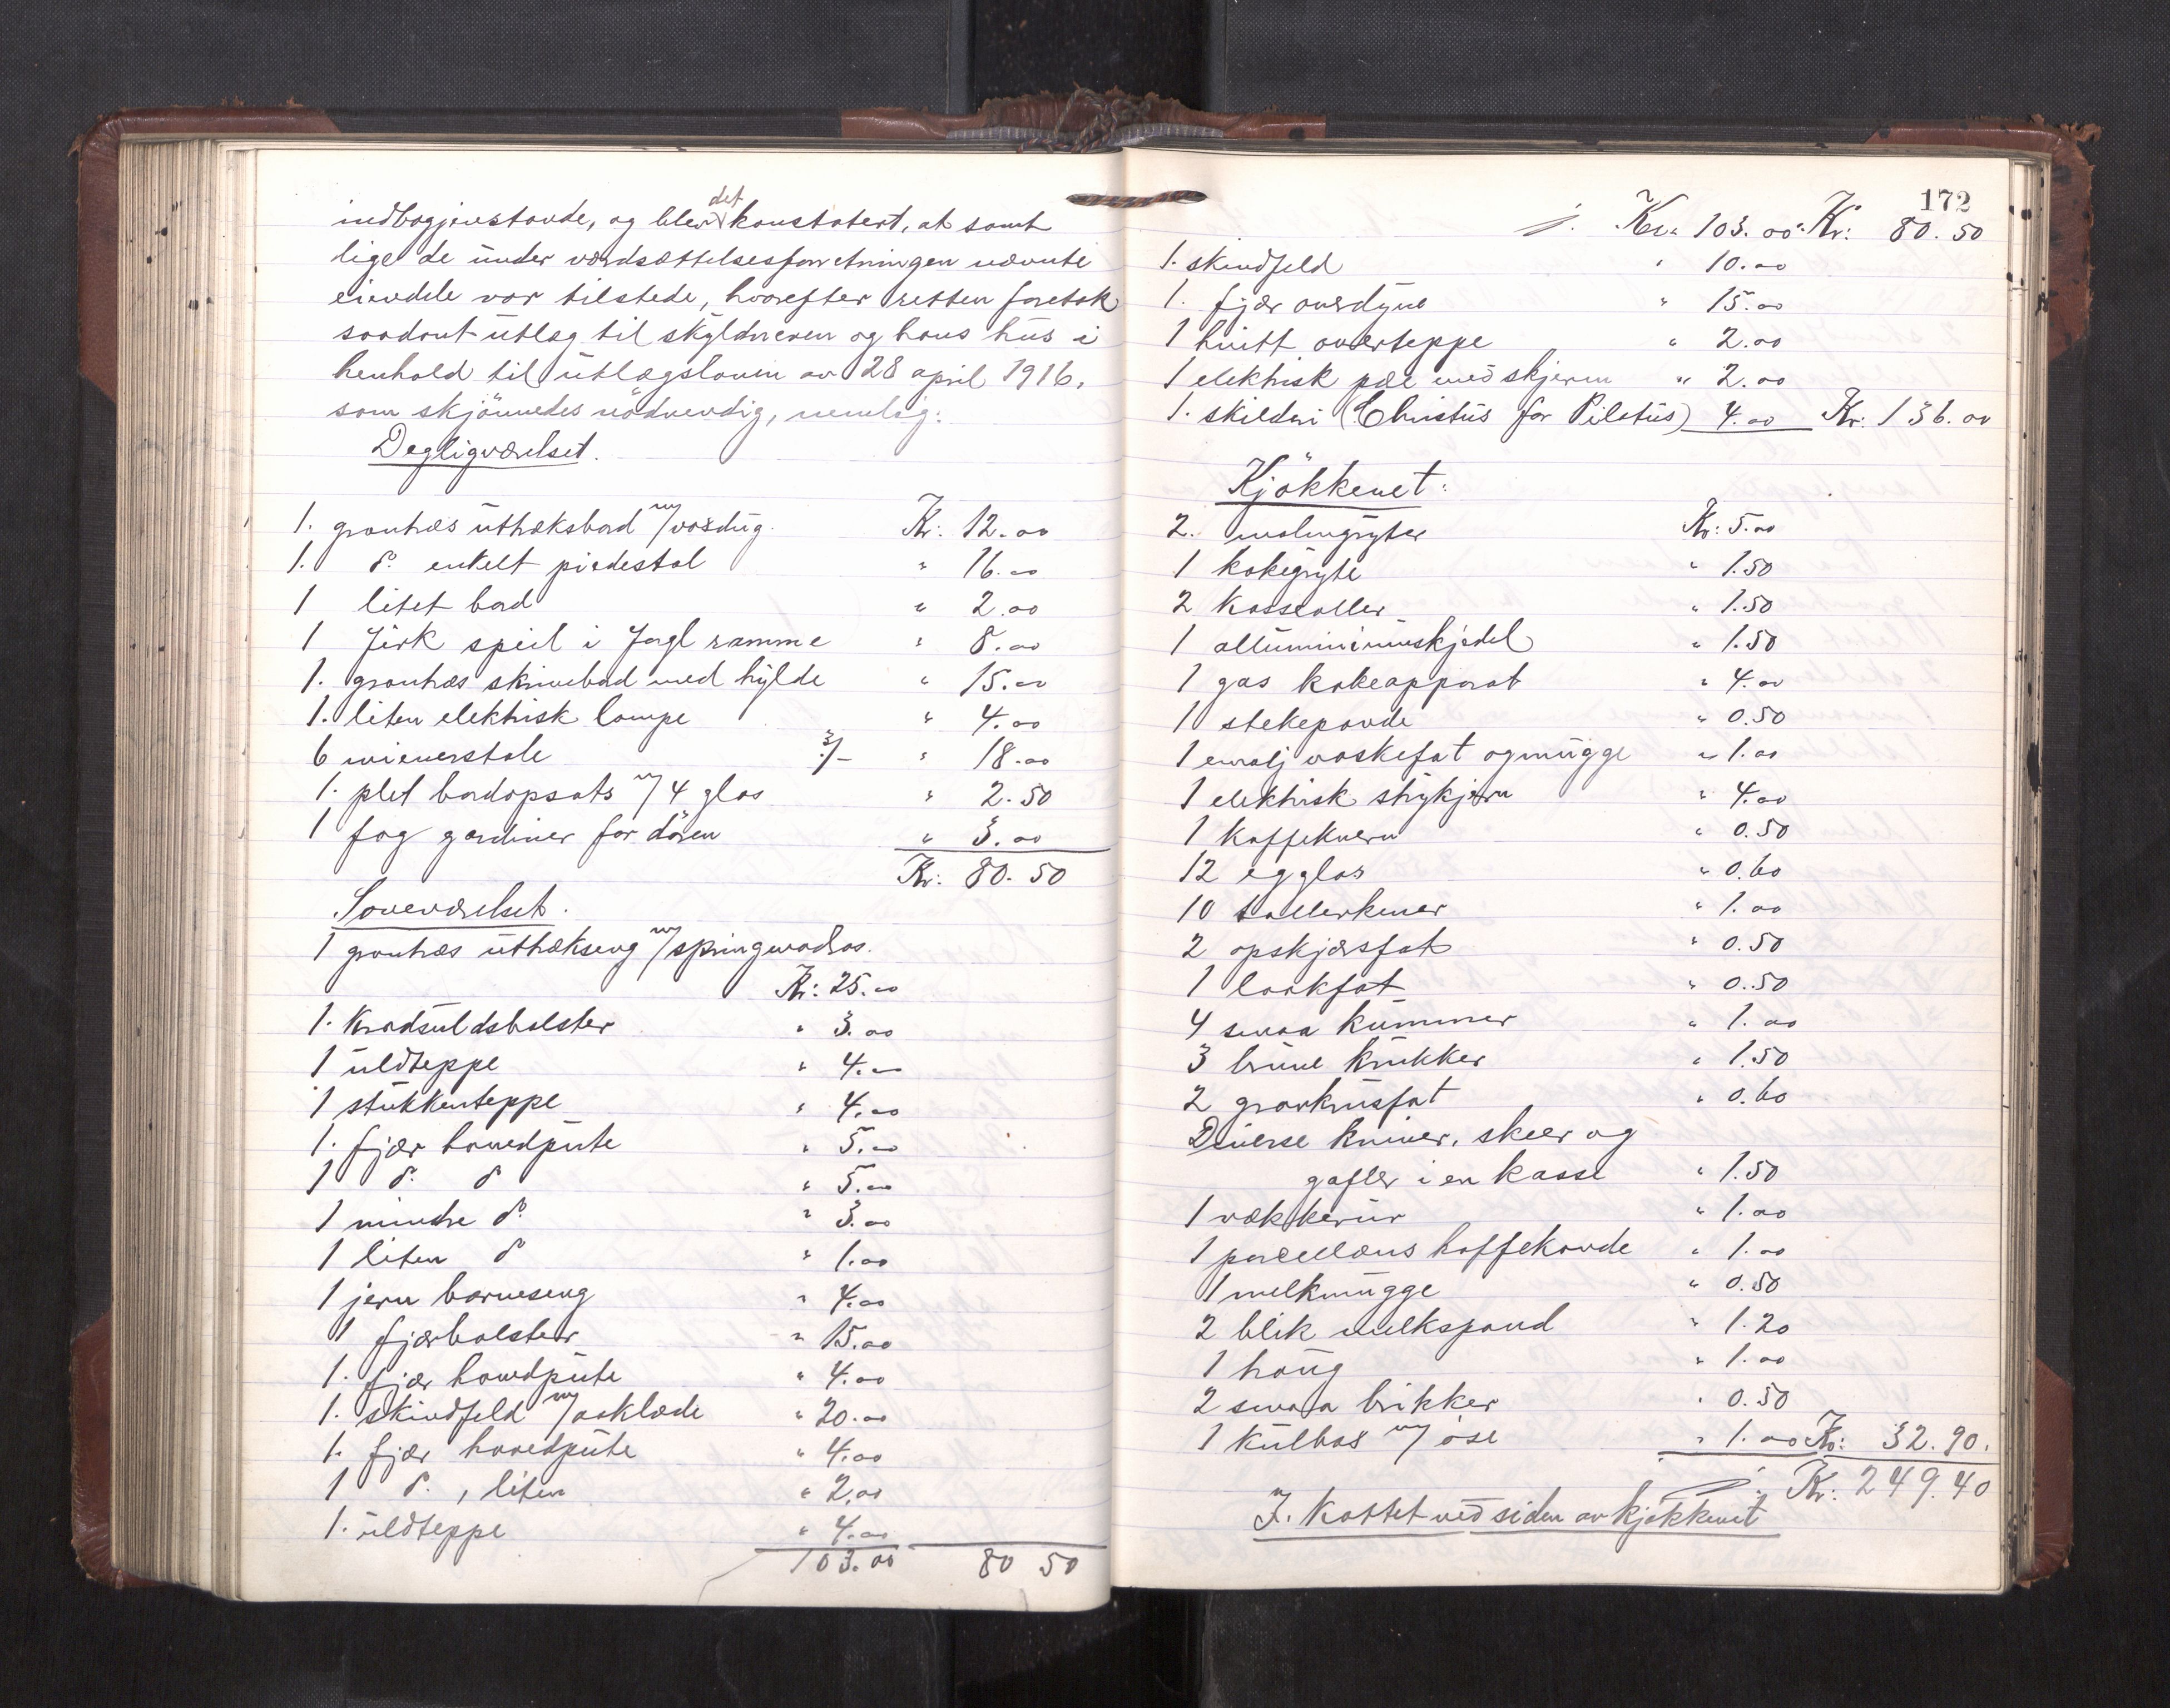 indbogjenstande, og blev det konstatert, at samt
lige de under værdsættelsesforretningen nævnte
eiendele var tilstede, hvorefter retten foretok
saadant utlæg til skyldneren og hans hus i
henhold til utlægsloven av 28 april 1916,
som skjönnedes nödvendig, nemlig:
Dagligværelset.
1. grantræs uttræksbord m/voxdug. Kr: 12.00
1. do enkelt piedestal " 16.00
1 litet bord " 2.00
1 Jirk speil i Jagl ramme " 8.00
1. grantræs skrivebord med hylde " 15.00
1. liten elektrisk lampe " 4.00
6 wienerstole 3/- " 18.00
1. plet bordopsats m/ 4 glas " 2.50
1 fag gardiner for dören " 3.00
Kr: 80.50
Soveværelset.
1 grantræs uttrækseng m/springmadras.
Kr: 25.00
1. Kradsuldsbolster " 3.00
1 uldteppe " 4.00
1 stukkenteppe " 4.00
1. fjær hovedpute " 5.00
1 do do " 5.00
1 mindre do " 3.00
1 liten do " 1.00
1 jern barneseng " 4.00
1 fjærbolster " 15.00
1. fjær hovedpute " 4.00
1. skindfeld m/aaklæde " 20.00
1. fjær hovedpute " 4.00
1 do, liten " 2.00
1. uldteppe " 4.00
103.00 80 50
172
Kr. 103.00 Kr: 80.50
1. skindfeld " 10.00
1. fjær overdyne " 15.00
1 hvitt overteppe " 2.00
1 elektrisk pære med skjerm " 2.00
1. skilderi (Christus for Pilatus) 4.00 Kr: 136.00
Kjökkenet:
2. malmgryter Kr: 5.00
1 kokegryte " 1.50
2 Kasseroller " 1.50
1 alluminiumskjedel " 1.50
1 gas kokeapparat " 4.00
1 stekepande " 0.50
1 emalj vaskefat og mugge " 1.00
1 elektrisk strykjern " 4.00
1 Kaffekvern " 0.50
12 egglas " 0.60
10 tallerkener " 1.00
2 opskjærsfat " 0.50
1 laakfat " 0.50
4 smaa Kummer " 1.00
3 brune Krukker " 1.50
2 graakrusfat " 0.60
Diverse kniver, skeer og
gafler i en kasse " 1.50
1 vækkerur " 1.00
1 porcellæns kaffekande " 1.00
1 melkmugge " 0.50
2 blik melkspand " 1.20
1 " 1.00
2 smaa brikker " 0.50
1 Kulbox m/ öse " 1.00 Kr: 32.90.
Kr: 249.40
I. Kottet ved siden av kjökkenet